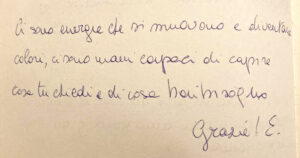 Ci sono energie che si muovono e diventano
colori, ci sono mani capaci di capire
cosa tu chiedi e di cosa hai bisogno
Grazie! E.